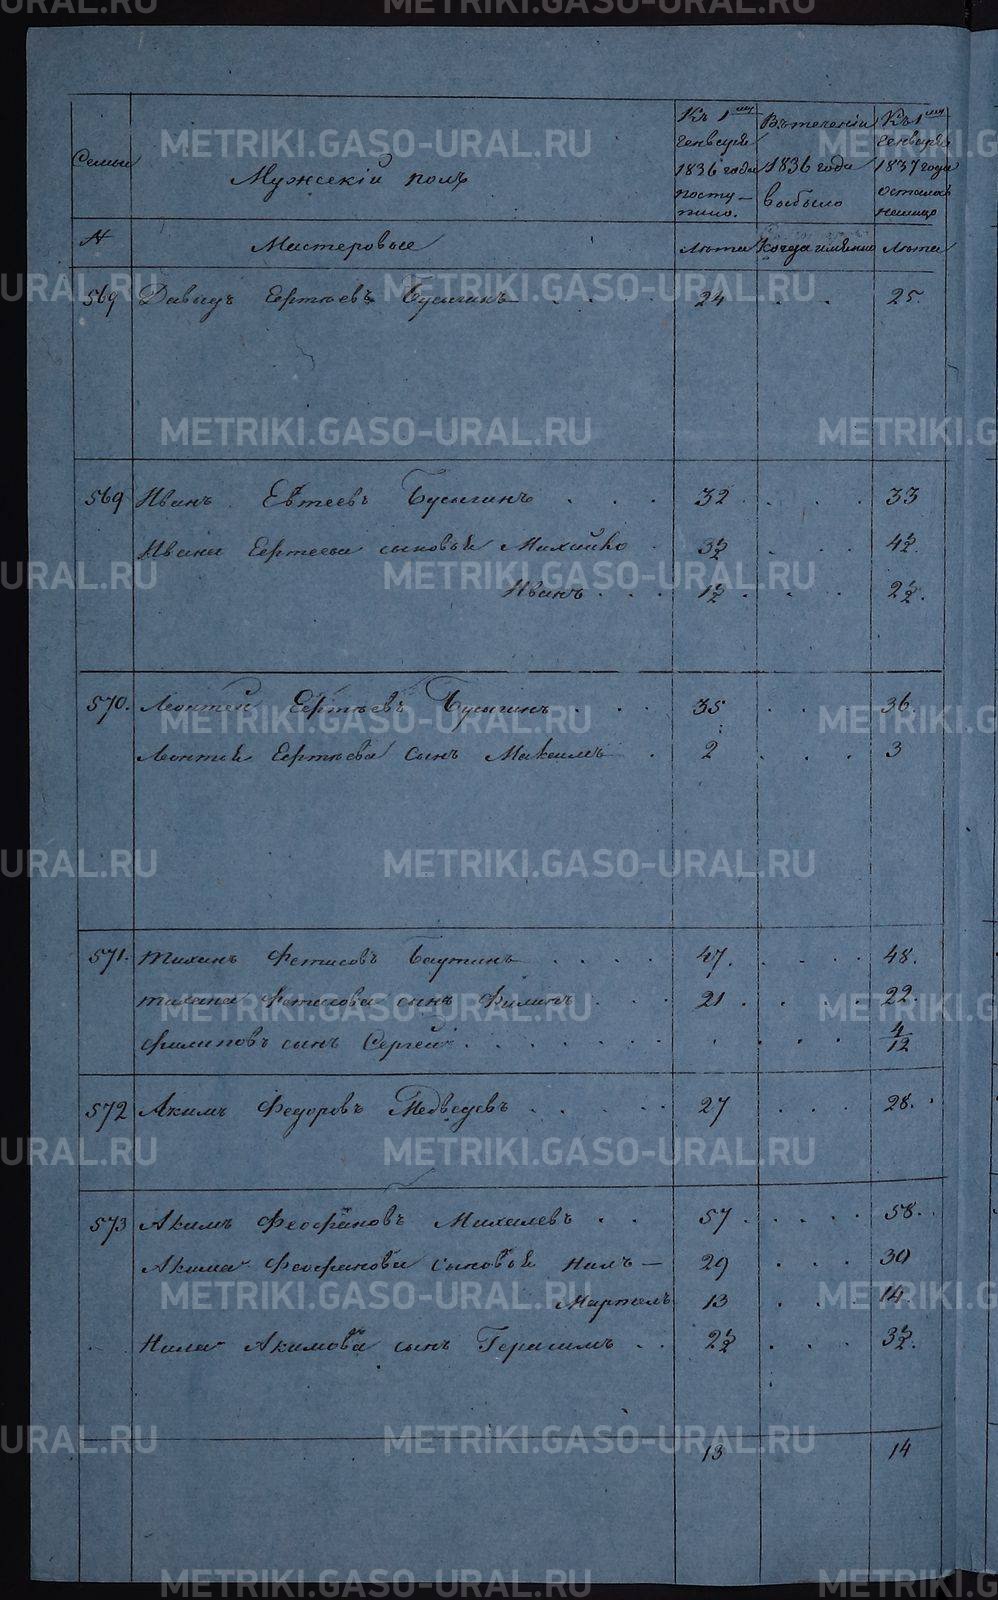 METRIKI.GASO-URAL.RU
Семьи
Мужескій полъ
Къ 1му генваря 1836 года поступило.
Въ теченіи 1836 года выбыло
Къ 1му генваря 1837 года осталось налицо
№ Мастеровые Лѣта Когда именно Лѣта
569 Давыдъ Евтѣевъ Бусыгинъ 24 25.
569 Иванъ Евтеевъ Бусыгинъ 32 33
Ивана Евтеева сыновья Михайло 3½ 4½.
Иванъ 1½ 2½.
570. Леонтей Евтѣевъ Бусыгинъ 35 36.
Леонтья Евтѣева сынъ Максимъ 2 3
571. Тихонъ Фетисовъ 47. 48.
Тихона Фетисова сынъ Филипъ 21. 22.
Филиповъ сынъ Сергей 4/12
572 Акимъ Федоровъ Медведевъ 27 28.
573 Акимъ Феофановъ Михалевъ 57 58.
Акима Феофанова сыновья Нилъ — 29 30
13 14.
Нила Акимова сынъ Герасимъ 2½ 3½.
13 14